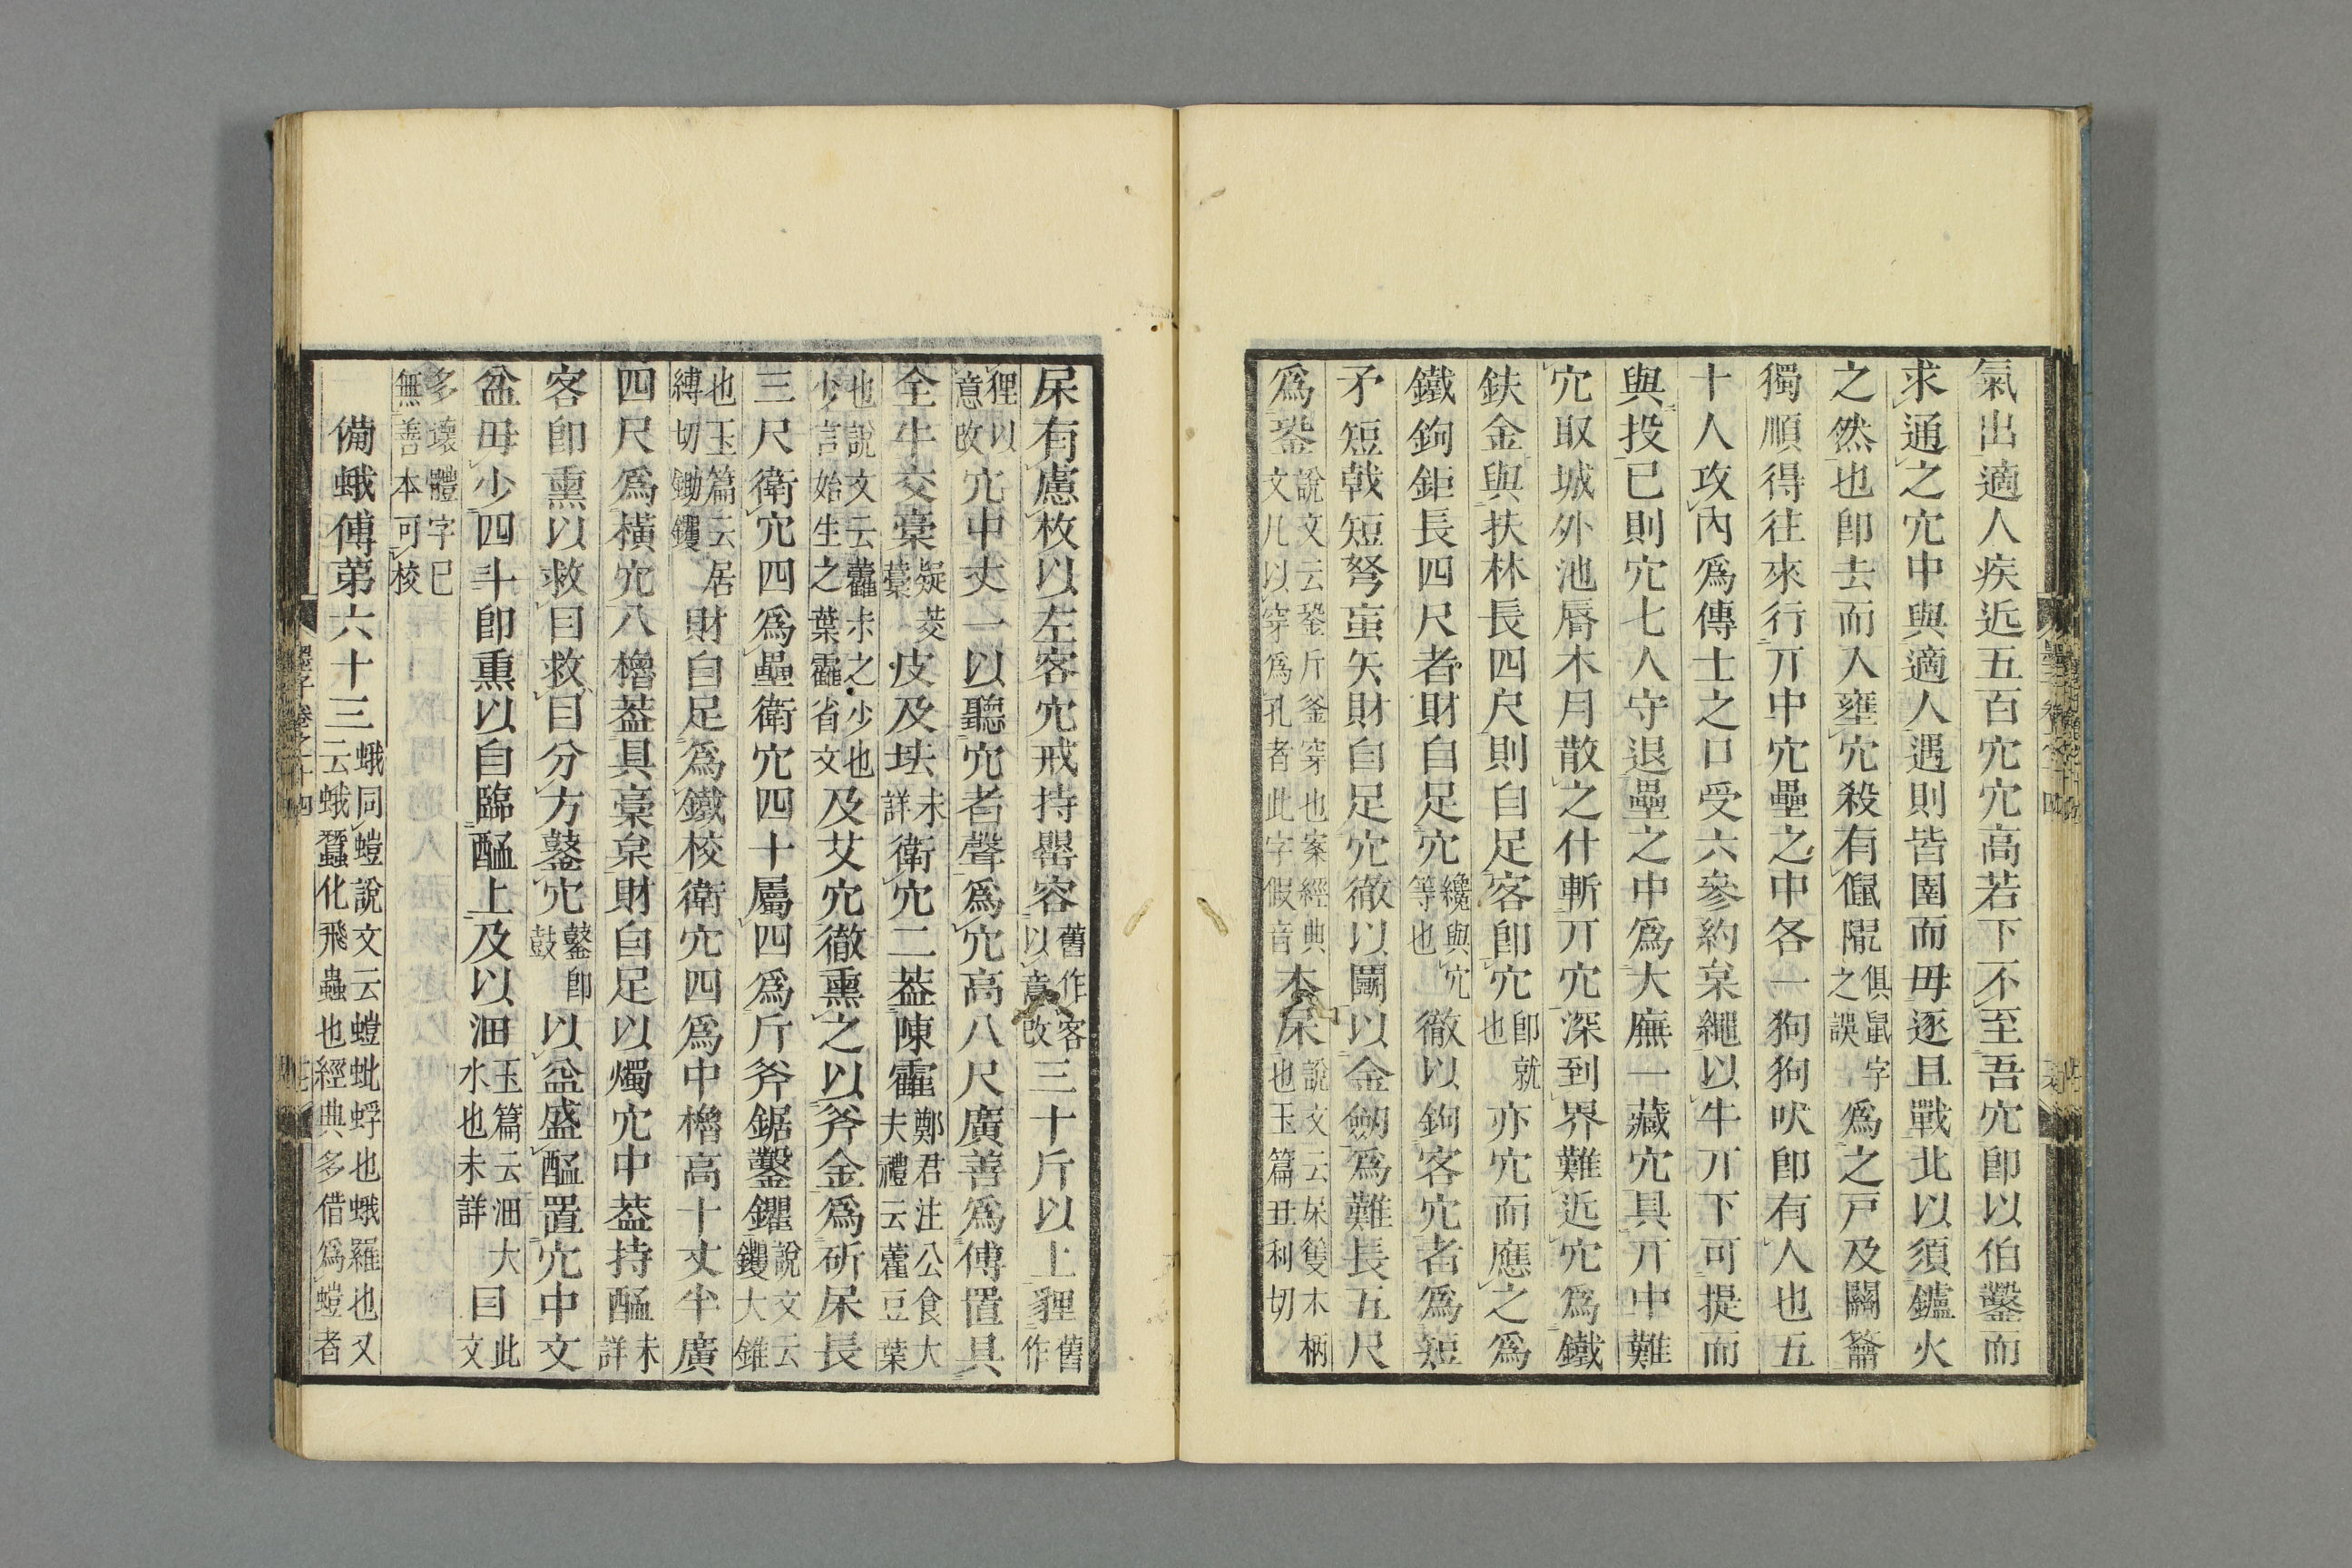 氣出適人疾近五百穴穴高若下不至吾穴卽以伯鑿而
求通之穴中與適人遇則皆圉而毋逐且戰北以須鑪火
之然也卽去而入壅穴殺有俱鼠字之誤爲之戸及關籥
獨順得往來行丌中穴壘之中各一狗狗吠卽有人也五
十人攻內爲傅士之口受六參約枲繩以牛丌下可提而
與投已則穴七人守退壘之中爲大廡一藏穴具丌中難
穴取城外池脣木月散之什斬丌穴深到界難近穴爲鐵
鈇金與扶林長四尺則自足客卽穴卽就也亦穴而應之爲
鐵鉤鉅長四尺者財自足穴纔與穴等也徹以鉤客穴者爲短
矛短戟短弩䖟矢財自足穴徹以鬬以金劒爲難長五尺
爲銎說文云銎斤釜穿也案經典文凡以穿爲孔者此字假音木杘說文云杘䉶木柄也玉篇丑利切
杘有慮枚以左客穴戒持罌容舊作客以意改三十斤以上貍舊作
狸以意改穴中丈一以聽穴者聲爲穴高八尺廣善爲傅置具
全牛交槀疑茭藁皮及㘩未詳衛穴二葢陳霍鄭君注公食大夫禮云藿豆葉
也說文云藿尗之少也少言始生之葉靃省文及艾穴徹熏之以斧金爲斫杘長
三尺衛穴四爲壘衛穴四十屬四爲斤斧鋸鑿钁說文云钁大錐
也玉篇云居縛切鋤钁財自足爲鐵校衛穴四爲中櫓高十丈半廣
四尺爲橫穴八櫓葢具槀枲財自足以燭穴中葢持醖未詳
客卽熏以救目救目分方鼜穴鼜卽鼓以盆盛醖置穴中文
盆毋少四斗卽熏以自臨醖上及以沺玉篇云沺大水也未詳目此文
多壞體字已無善本可校
備蛾傅第六十三蛾同螘說文云螘蚍蜉也蛾羅也又云蛾蠶化飛蟲也經典多借爲螘者
墨子卷之十四